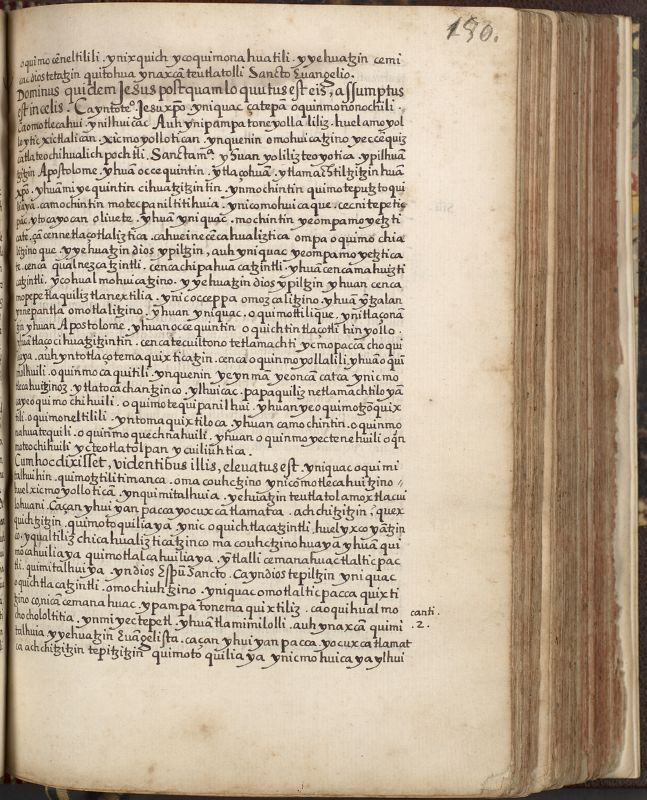 180.
o quimo cēneltilili . ynixquich ycoquimona huatili . yyehuatzin cemi
cac dios tetatzin quitohua ynaxcā teutlatolli Sancto Euangelio .
Dominus quidem Jesus postquam loquutus est eis, assumptus
est in celis . Cayntoteᵒ Jesuxp̄o yniquac catepā oquinmononochili .
Caomotlecahui . ynilhuicac Auh ynipampa toneyolla liliz . huel amoyol
lo ytic xictlalican . xicmoyolloti can . ynquenin omohuicatzino
catlateochihualich pochtli . Sanctamᵃ yhuan yolilizteoyotica . ypilhuā
tzitzin Apostolome . yhuā occequintin . ytlaçohuā . ytlamachtiltzitzin huā
xp̄o . yhuā miyequintin cihuatzitzintin . ynmochintin quimotepotztoqui
liaya . camochintin motecpanil titihuia . ynicomohuica que . cecni tepetic
pac . ytocayocan oliuete . yhuā yniquac . mochintin yeompa moyetzti
cate . çā cennetlaçotlaliztica . cahueinecēcahualiztica ompa oquimo chia
litzino que . yyehuatzin dios ypiltzin , auh yniquac yeompa moyetztica
te . cenca qualnezcatzintli . cenca chipahuacatzintli . yhuā cenca mahuizti
catzintli . yc ohualmohuicatzino . yyehuatzin dios ypiltzin yhuan cenca
mopepetlaquiliztlanextilia . ynic occeppa omozcalitzino . yhuā ytzalan
ynnepantla omotlalitzino . yhuan yniquac . oquimottilique . ynitlaçonā
tzin yhuan Apostolome . yhuan occequintin oquichtin tlaçotlihinyollo .
yhuātlaçocihuatzitzintin . cenca tecuiltono tetlamachti ycmopacca choqui
liaya . auh yntotlaçotemaquixticatzin . cenca oquinmoyollalili yhuā oqui
molhuili . oquinmocaquitili . ynquenin yeynmā yeoncā catca ynicmo
tlecahuitzinoz . ytlatocachantzinco . ylhuicac . papaquiliz netlamachtiloyā
yayeoquimochihuili . oquimotequipanilhui . yhuan yeoquimotzōquix
tili . oquimoneltilili . yntomaquixtiloca . yhuan camochintin . oquinmo
nahuatequili . oquinmoquechnahuili . yhuan oquinmoyectenehuili
moteochihuili ycteotlatolpan ycuiliuhtica .
Cum hoc dixisset, videntibus illis, eleuatus est . yniquac oquimi
talhui hin . quimotztilitimanca . omacouhctzino ynicomotlecahuitzino
huel xicmoyolloticā . ynquimitalhuia . yehuatzin teutlatolamoxtlacui
lohuani . Caçan yhuiyan pacca yocuxcatlamatca . achchitzitzin quex
quichtzitzin . quimotoquiliaya . ynic oquichtlacatzintli . huelyxcoyātzin
co . yqualtiliz chicahualiztica itzincomacouhctzinohuaya yhuā qui
mocahuiliaya quimotlalcahuiliaya . ytlalli cemanahuac tlalticpac
tli . quimitalhuiya . yndios Espū Sancto . Cayndios tepiltzin yniquac
oquichtlacatzintli . omochiuhtzino . yniquac omotlalticpaccaquixti
tzinoco, nicā cemanahuac . ypampa tonemaquixtiliz . caoquihualmo
chochololtitia . ynmiyectepetl . yhuā tlamimilolli . auh ynaxcā quimi
talhuia yyehuatzin Euāgelista . caçan yhuiyan pacca . yocuxcatlamat
ca achchitzitzin tepitzitzin quimotoquiliaya ynicmohuicaya ylhui
canti .
. 2 .